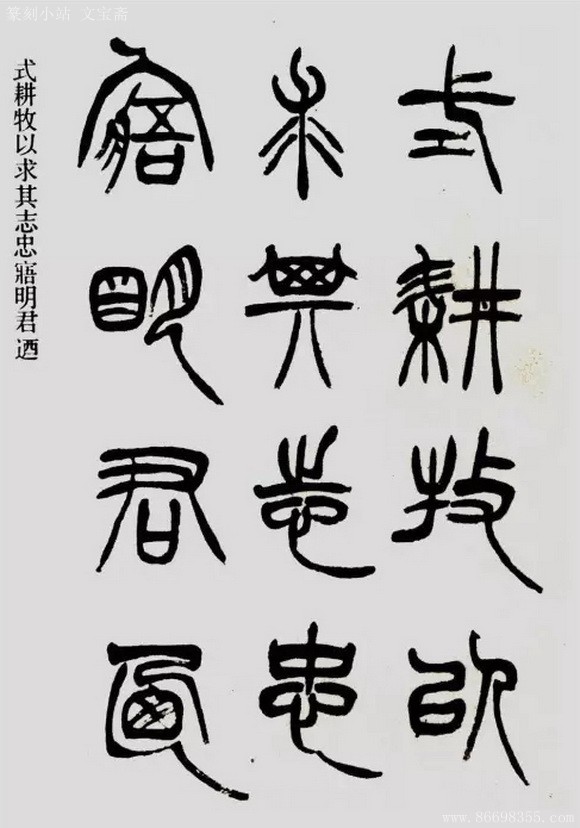 篆刻小站 文宝斋
式耕牧以
求其志忠
寤明君迺
式耕牧以求其志忠寤明君迺
www.86698355.com